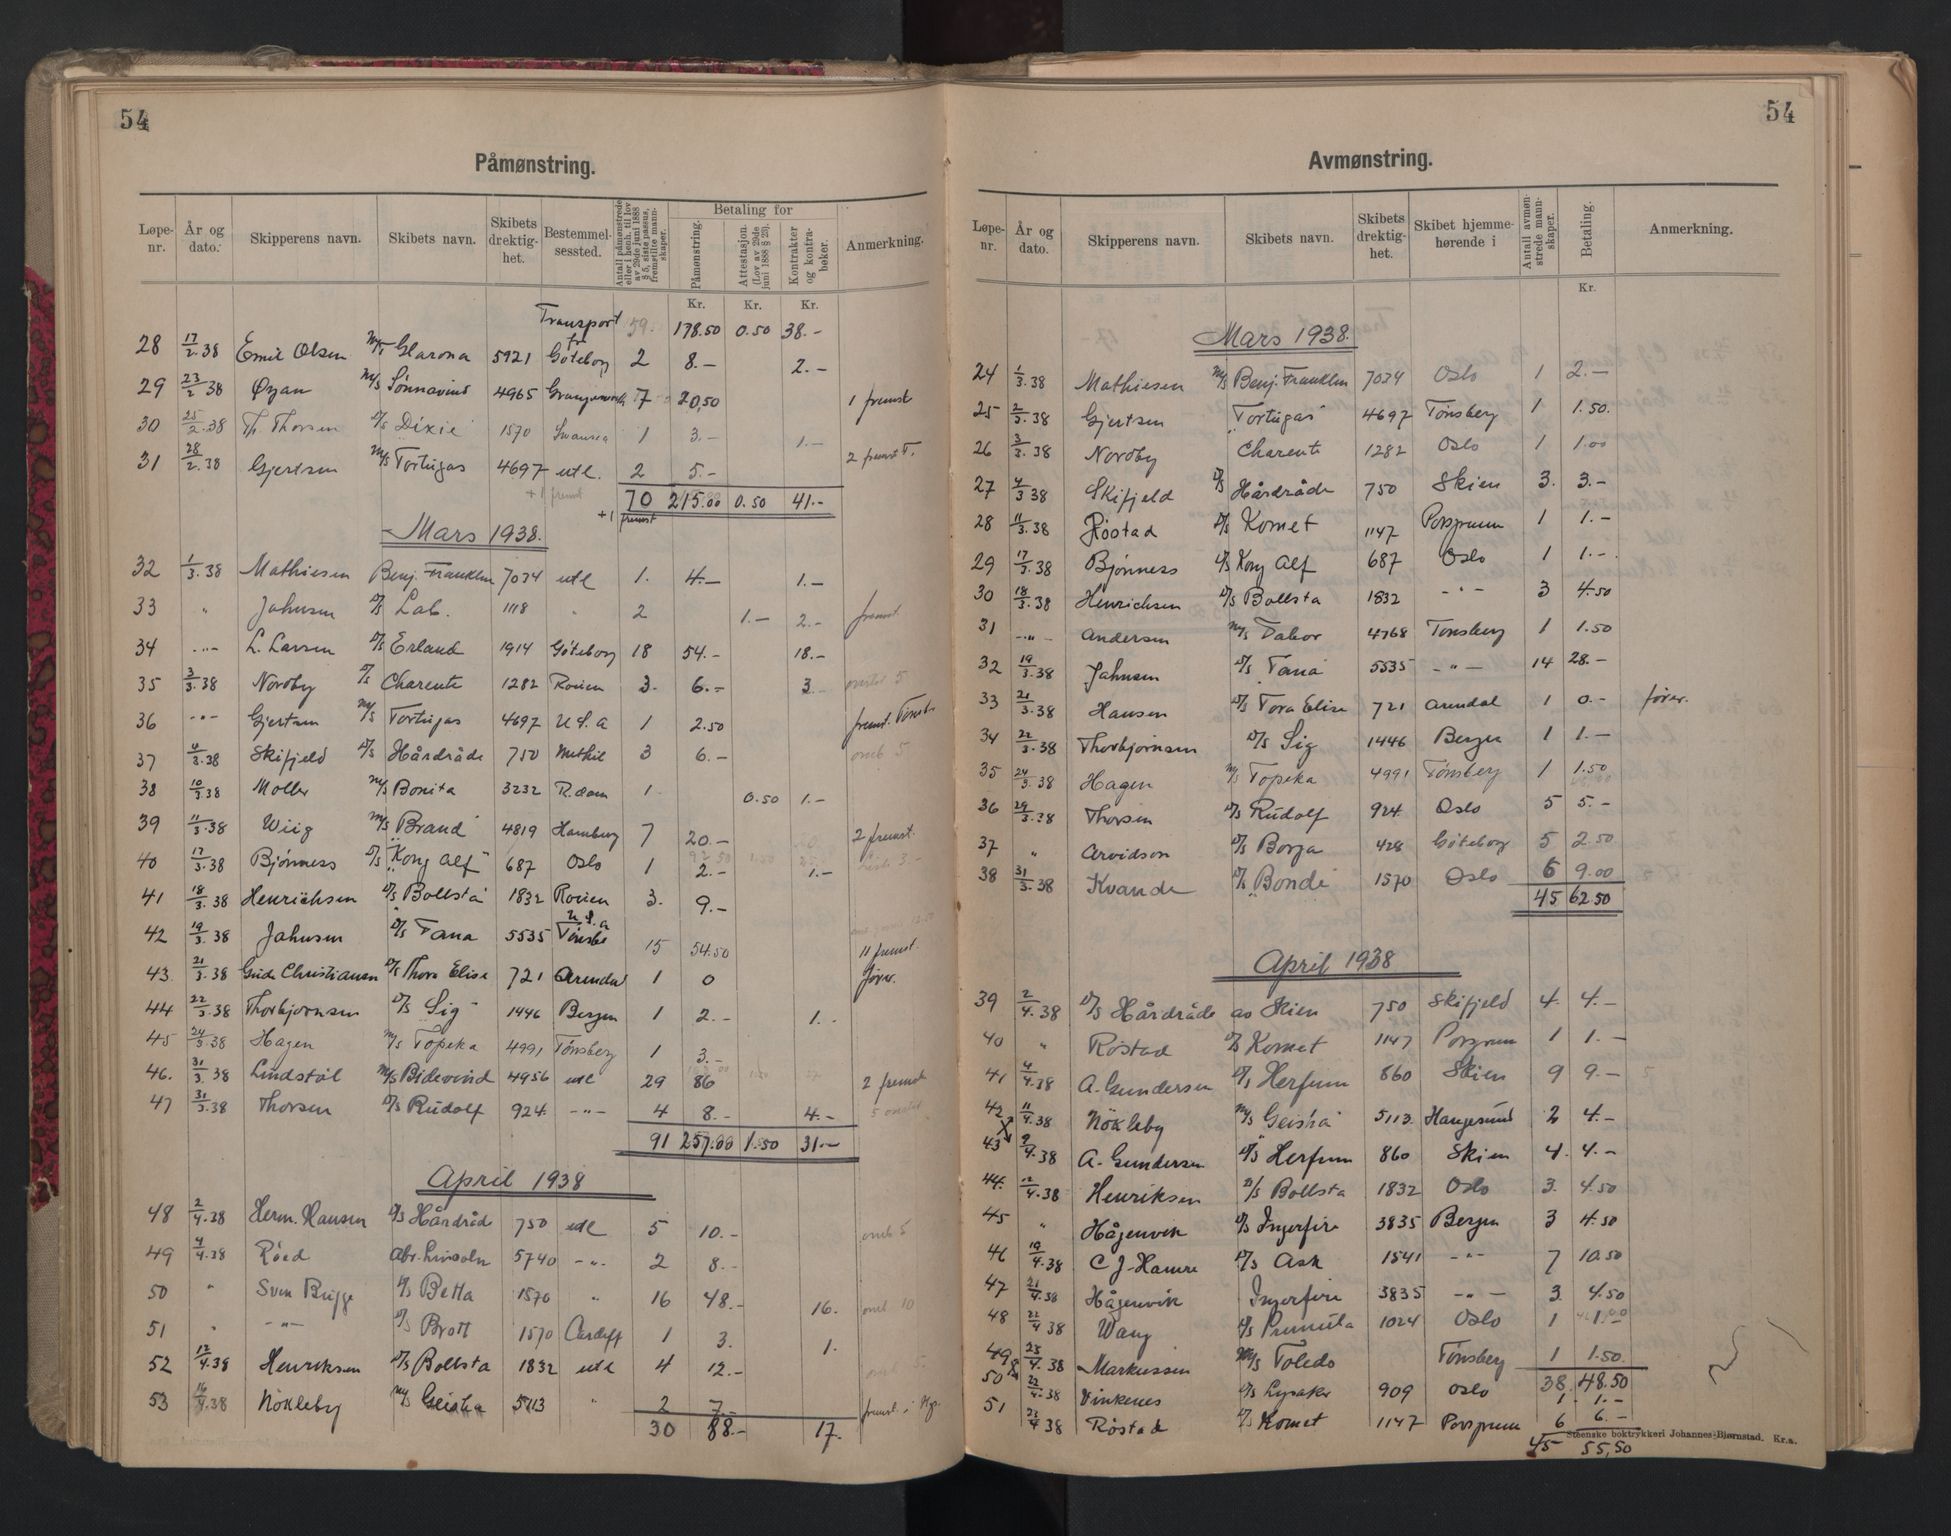 54
Påmønstring.
Løpe-nr. År og dato. Skipperens navn. Skibets navn. Skibets drektig-het. Bestemmel-sessted. Antall påmønstrede eller i henh. til lov av 29de juni 1888 § 5, siste passus, fremstilte mann-skaper. Betaling for Påmønstring. Attestasjon. (Lov av 29de juni 1888 § 20). Kontrakter og kontra-bøker. Anmerkning.
Kr. Kr. Kr.
Transport 59. 178.50 0.50 38.-
28 17/2.38 Emil Olsen M/T Glarona 5921 Göteborg 2 8.- 2.-
29 23/2 38 Øyan M/S Sønnavind 4965 7 20,50 1 fremst
30 25/2.38 Th. Thorsen D/S Dixie 1570 Swansea 1 3.- 1.-
31 28/2.38 Gjertsen M/S Tortugas 4697 utl. 2 5.- 2 fremst T.
+1 fremst 70 215.00 0.50 41.-
+1 fremst
Mars 1938.
32 1/3.38 Mathiesen Benj. Franklin 7034 utl 1. 4.- 1.-
33 " Jahnsen D/S Lab. 1118 " 2 1.- 2.- fremst.
34 -"- L. Larsen D/S Erland 1914 Göteborg 18 54.- 18.-
35 3/3.38 Nordby T/S Charente 1282 Rouen 3. 6.- 3.-
36 -"- Gjertsen M/S Tortugas 4697 U.S.a 1 2.50 fremst.
37 4/3.38 Skifjeld D/S Hårdråde 750 Methil 3 6.- omb 5
38 10/3.38 Moller M/S Bonita 3232 R.dam 1 0.50 1.-
39 11/3.38 Wiig M/S Brand 4819 Hamburg 7 20.- 2 fremst.
40 17/3.38 Bjønness D/S Kong Alf 687 Oslo 1 2.- 1.-
41 18/3.38 Henrichsen D/S Bollsta 1832 Rouen 3. 9.-
42 19/3.38 Jahnsen D/S Tana 5535 U.S.a 15 54.50 11 fremst
43. 21/3.38 Gude Christiansen D/S Thora Elise 721 Arendal 1 0 fører.
44 22/3.38 Thorbjørnsen D/S Sig 1446 Bergen 1 2.- 1.-
45 24/3.38 Hagen M/S Topeka 4991 Tønsberg 1 3.-
46. 31/3.38 Lindstøl M/S Bidevind 4956 utl 29 86 2 fremst
47 31/3.38 Thorsen D/S Rudolf 924 -"- 4 8.- 4.-
91 257.00 1.50 31.-
April 1938
48 2/4.38 Herm. Hansen D/S Hårdråde 750 utl 5 10.- omb 5
49 4/4.38 Röed Abr. Lincoln 5740 -"- 2 8.-
50 " Sven Brigge D/S Betta 1570 " 16 48.- 16. omb 10
51 " -"- D/S Brott 1570 Cardiff 1 3. 1.
52 12/4.38 Henriksen D/S Bollsta 1832 utl 4 12.- omb 5.
53 16/4.38 Nökleby M/S Geisha 5113 " 2 7.-
30 88.- 17.
54
Avmønstring.
Løpe-nr. År og dato. Skipperens navn. Skibets navn. Skibets drektig-het. Skibet hjemme-hørende i Antall avmøn-strede mann-skaper. Betaling. Anmerkning.
Kr.
Mars 1938.
24 1/3.38 Mathiesen M/S Benj. Franklin 7034 Oslo 1 2.-
25 2/3.38 Gjertsen Tortugas 4697 Tönsberg 1 1.50.
26 3/3.38 Nordby Charente 1282 Oslo 1 1.00
27 4/3 38 Skifjeld D/S Hårdråde 750 Skien 3. 3.-
28 11/3.38 Röstad D/S Komet 1147 Porsgrunn 1 1.-
29 17/3.38 Bjønness D/S Kong Alf 687 Oslo 1 1.-
30 18/3.38 Henrichsen D/S Bollsta 1832 -"- 3 4.50
31 -"- Andersen M/S Tabor 4768 Tønsberg 1 1.50
32 19/3.38 Jahnsen D/S Tana 5535 -"- 14 28.-
33 21/3.38 Hansen D/S Tora Elise 721 Arendal 1 0.- fører.
34 22/3.38 Thorbjørnsen D/S Sig 1446 Bergen 1 1.-
35 24/3.38 Hagen M/S Topeka 4991 Tönsberg 1 1.50
36 29/3.38 Thorsen D/S Rudolf 924 Oslo 5 5.-
37 " Arvidson D/S Borga 428 Göteborg 5 2.50
38 31/3.38 Kvande D/S Bondi 1570 Oslo 6 9.00
45 62.50
April 1938
39 2/4.38 D/S Hårdråde av Skien 750 Skifjeld 4. 4.-
40 " Röstad D/S Komet 1147 Porsgrunn 1 1.-
41 4/4.38 A. Gundersen D/S Herfum 860 Skien 9 9.-
42 11/4.38 Nökleby M/S Geisha 5113 Haugesund 2 4.-
43 9/4.38 A. Gundersen D/S Herfum 860 Skien 4. 4.-
44. 12/4.38 Henriksen D/S Bollsta 1832 Oslo 3. 4.50
45 " Hågenvik D/S Ingerfire 3835 Bergen 3 4.50
46 19/4.38 C J. Hamre D/S Ask 1541 -"- 7 10.50
47 21/4.38 Hågenvik Ingerfire 3835 -"- 3 4.50
48 22/4 38 Wang D/S Primula 1024 Oslo 1 1.00
49 25/4.38 Markussen M/S Toledo Tønsberg 1 1.50.
38 48.50
50 22/4.38 Vinkenes D/S Lysaker 909 Oslo 1 1.-
51 23/4 38 Röstad D/S Komet 1147 Porsgrunn 6 6.-
45 55,50
Steenske boktrykkeri Johannes Bjørnstad. Kr.a.